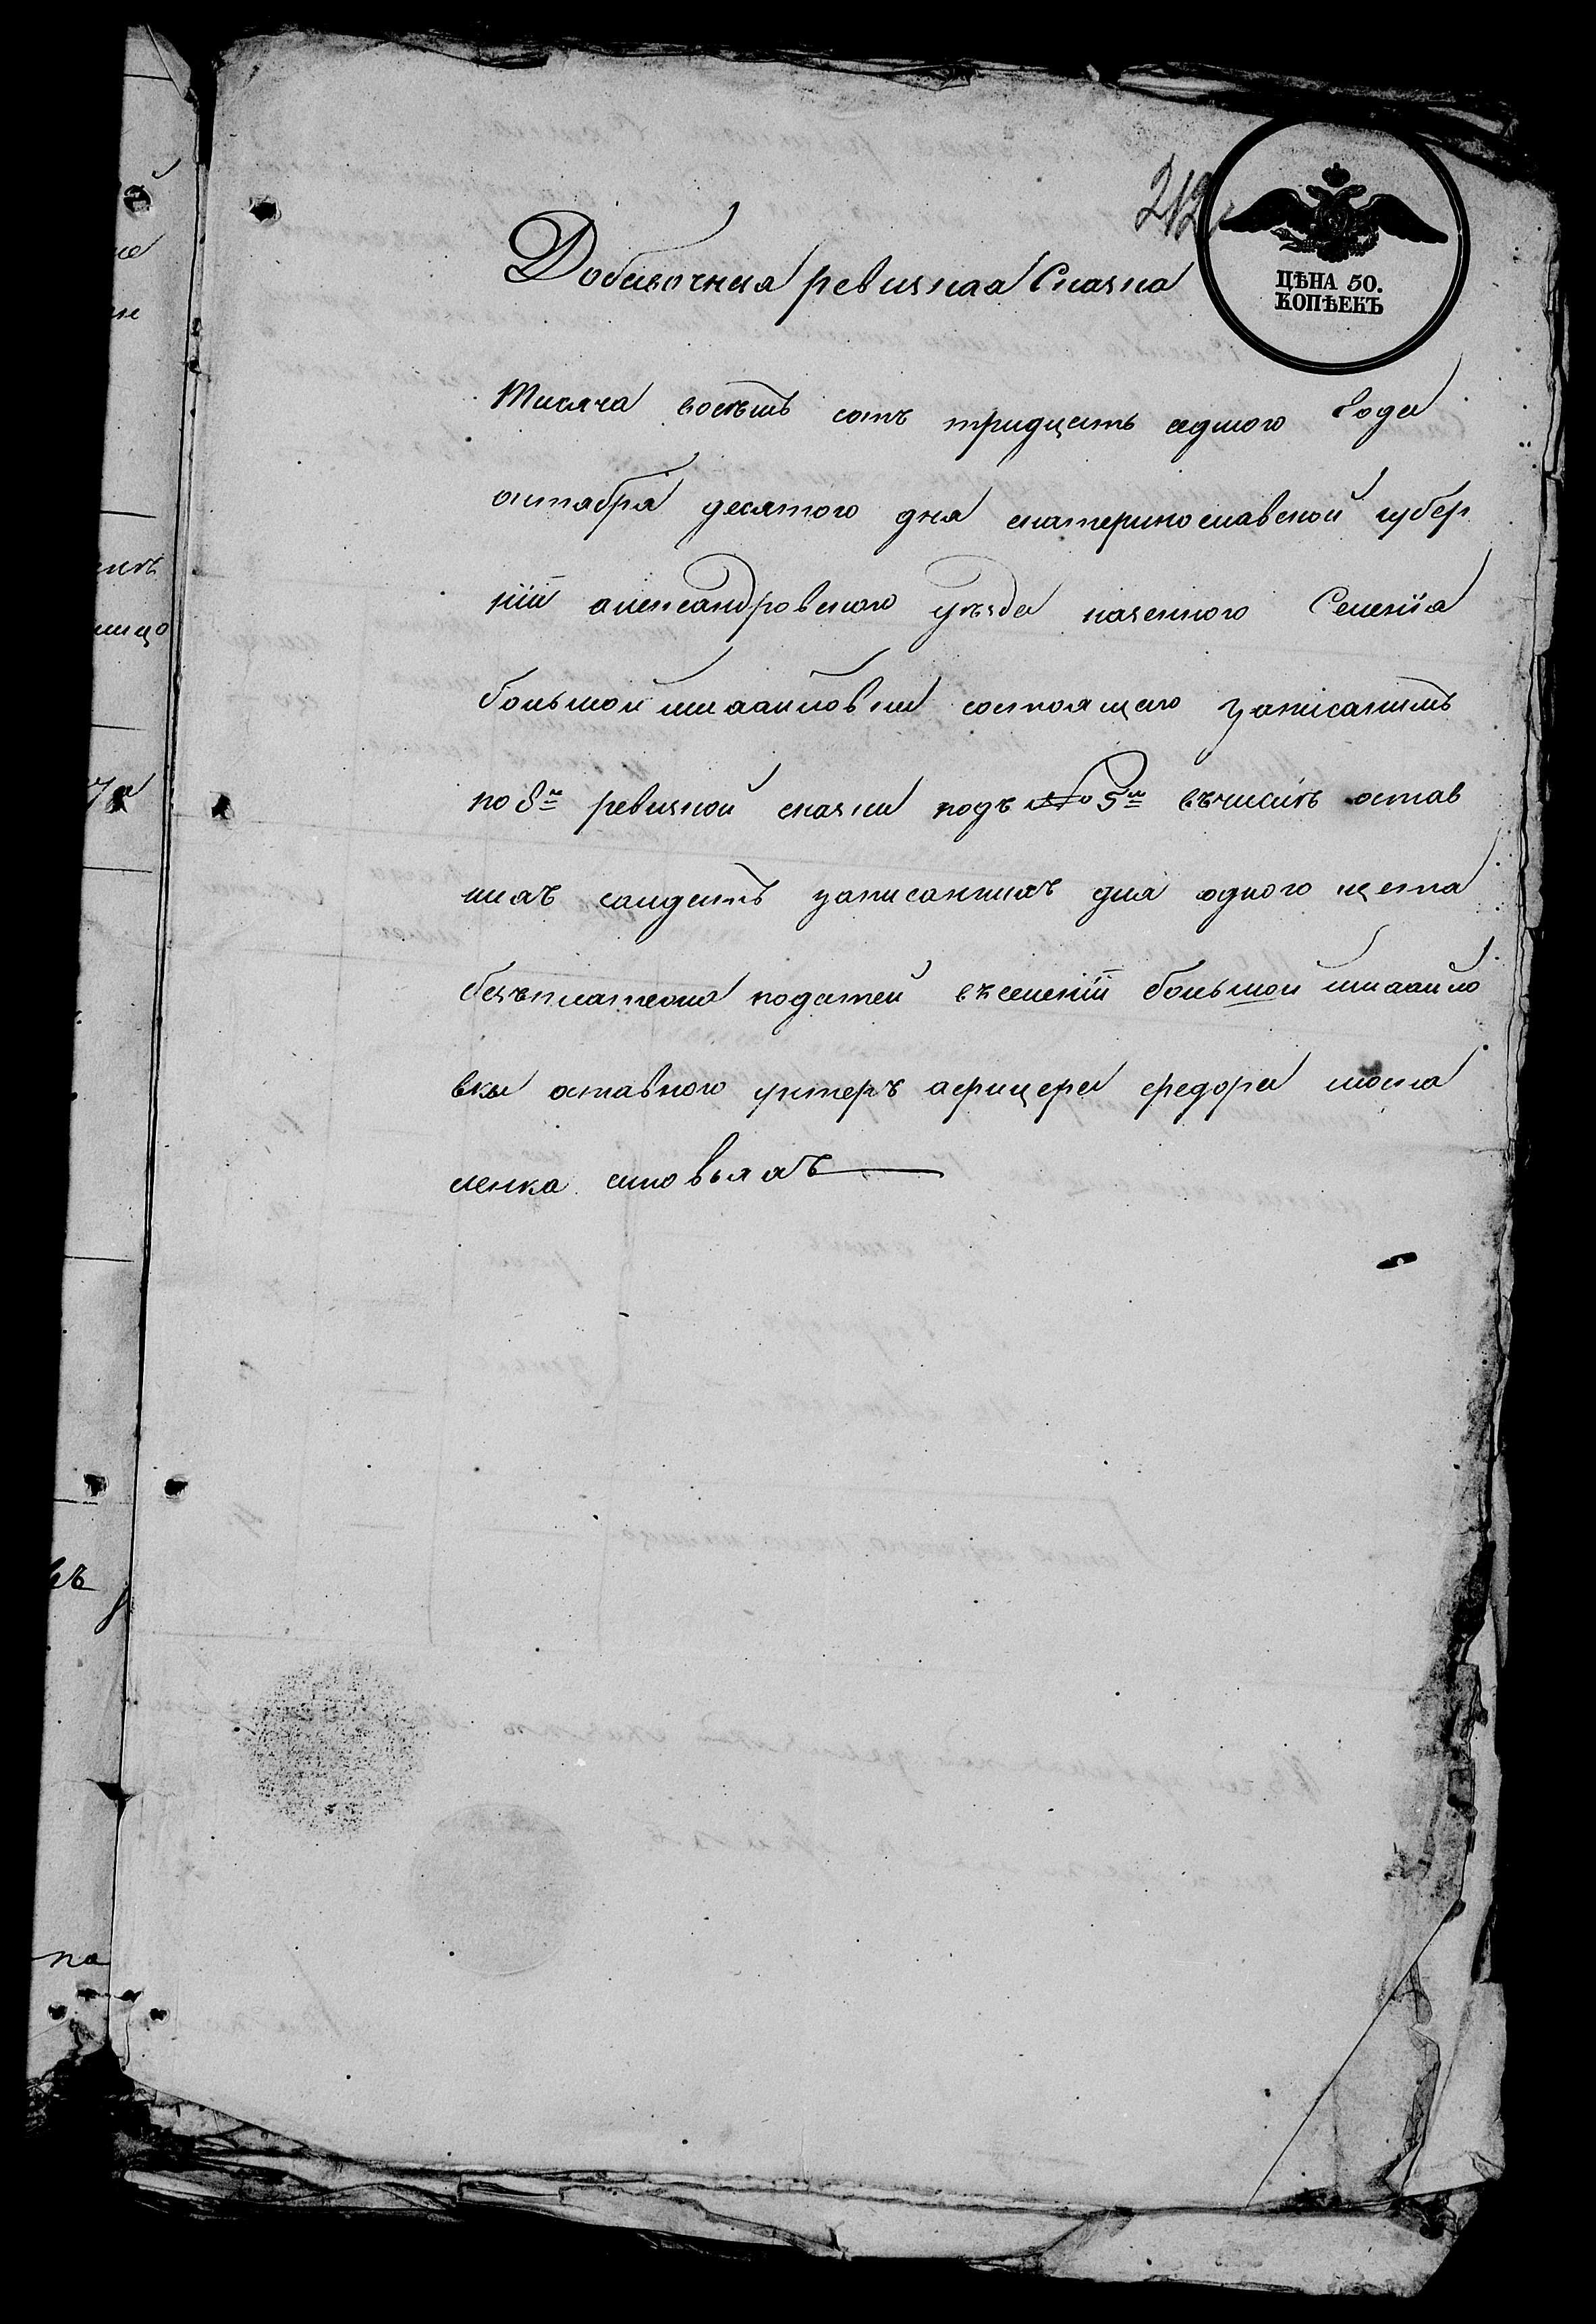 212
ЦѢНА 50.
КОПѢЕКЪ
Добавочная ревизкая Сказка
Тисяча восѣмъ сотъ тридцать седмого Года
октября десятого дня екатеринославской губер
нїи александровского уѣзда казенного Селенїя
большой михайловки состоящего записанимъ
по 8й ревизкой сказки подъ № 5м въчислѣ остав
нихъ салдатъ записанныхъ для одного щета
безъплатежа податей въселенїи большой михайло
вки оставного унтеръ афицера федора моска
ленка сыновьяхъ